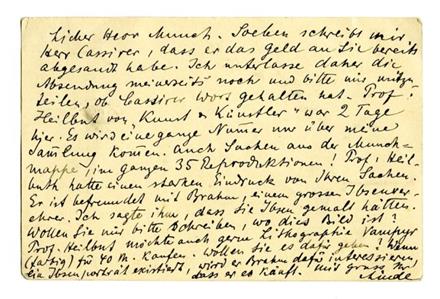 Lieber Herr Munch. Soeben schreibt mir
Herr Cassirer, dass er das Geld an Sie bereits
abgesandt habe. Ich unterlasse daher die
Absendung meinerseits noch und bitte mir mitzu-
teilen, ob Cassirer Wort gehalten hat. Prof.
Heilbut von „Kunst u Künstler" war 2 Tage
hier. Es wird eine ganze Numer nur über meine
Samlung komen. Auch Sachen aus der Munch-
mappe, im ganzen 35 Reproduktionen! Prof. Heil-
buth hatte einen starken Eindruck von Ihren Sachen.
Er ist befreundet mit Brahm, einem grossen Ibsenver-
ehrer. Ich sagte ihm, dass Sie Ibsen gemalt hätten.
Wollen Sie mir bitte schreiben, wo dies Bild ist?
Prof. Heilbut möchte auch gerne Lithographie Vampyr
(farbig) für 40 M. kaufen. Wollen Sie es dafür geben? Wenn
ein Ibsenporträt existiert, wird er Brahm dafür interessieren,
dass er es kauft. Mit Gruss Ihr
Linde